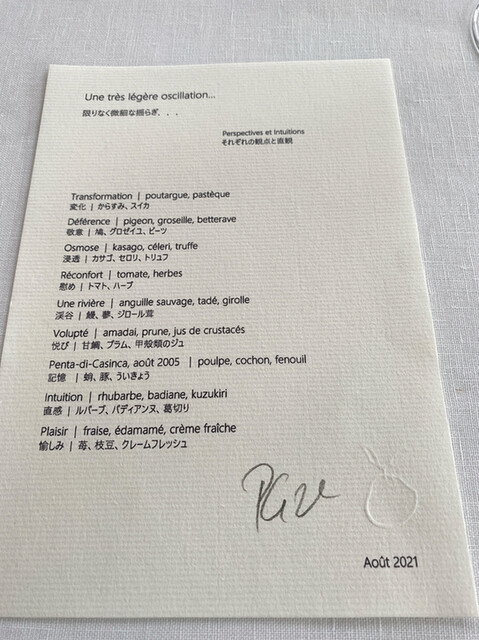 Une très légère oscillation...
限りなく微細な揺らぎ．．．
Perspectives et Intuitions
それぞれの観点と直観
Transformation | poutargue, pastèque
変化 | からすみ、スイカ
Déférence | pigeon, groseille, betterave
敬意 | 鳩、グロゼイユ、ビーツ
Osmose | kasago, céleri, truffe
浸透 | カサゴ、セロリ、トリュフ
Réconfort | tomate, herbes
慰め | トマト、ハーブ
Une rivière | anguille sauvage, tadé, girolle
渓谷 | 鰻、蓼、ジロール茸
Volupté | amadai, prune, jus de crustacés
悦び | 甘鯛、プラム、甲殻類のジュ
Penta-di-Casinca, août 2005 | poulpe, cochon, fenouil
記憶 | 蛸、豚、ういきょう
Intuition | rhubarbe, badiane, kuzukiri
直感 | ルバーブ、バディアンヌ、葛切り
Plaisir | fraise, édamamé, crème fraîche
愉しみ | 苺、枝豆、クレームフレッシュ
Août 2021